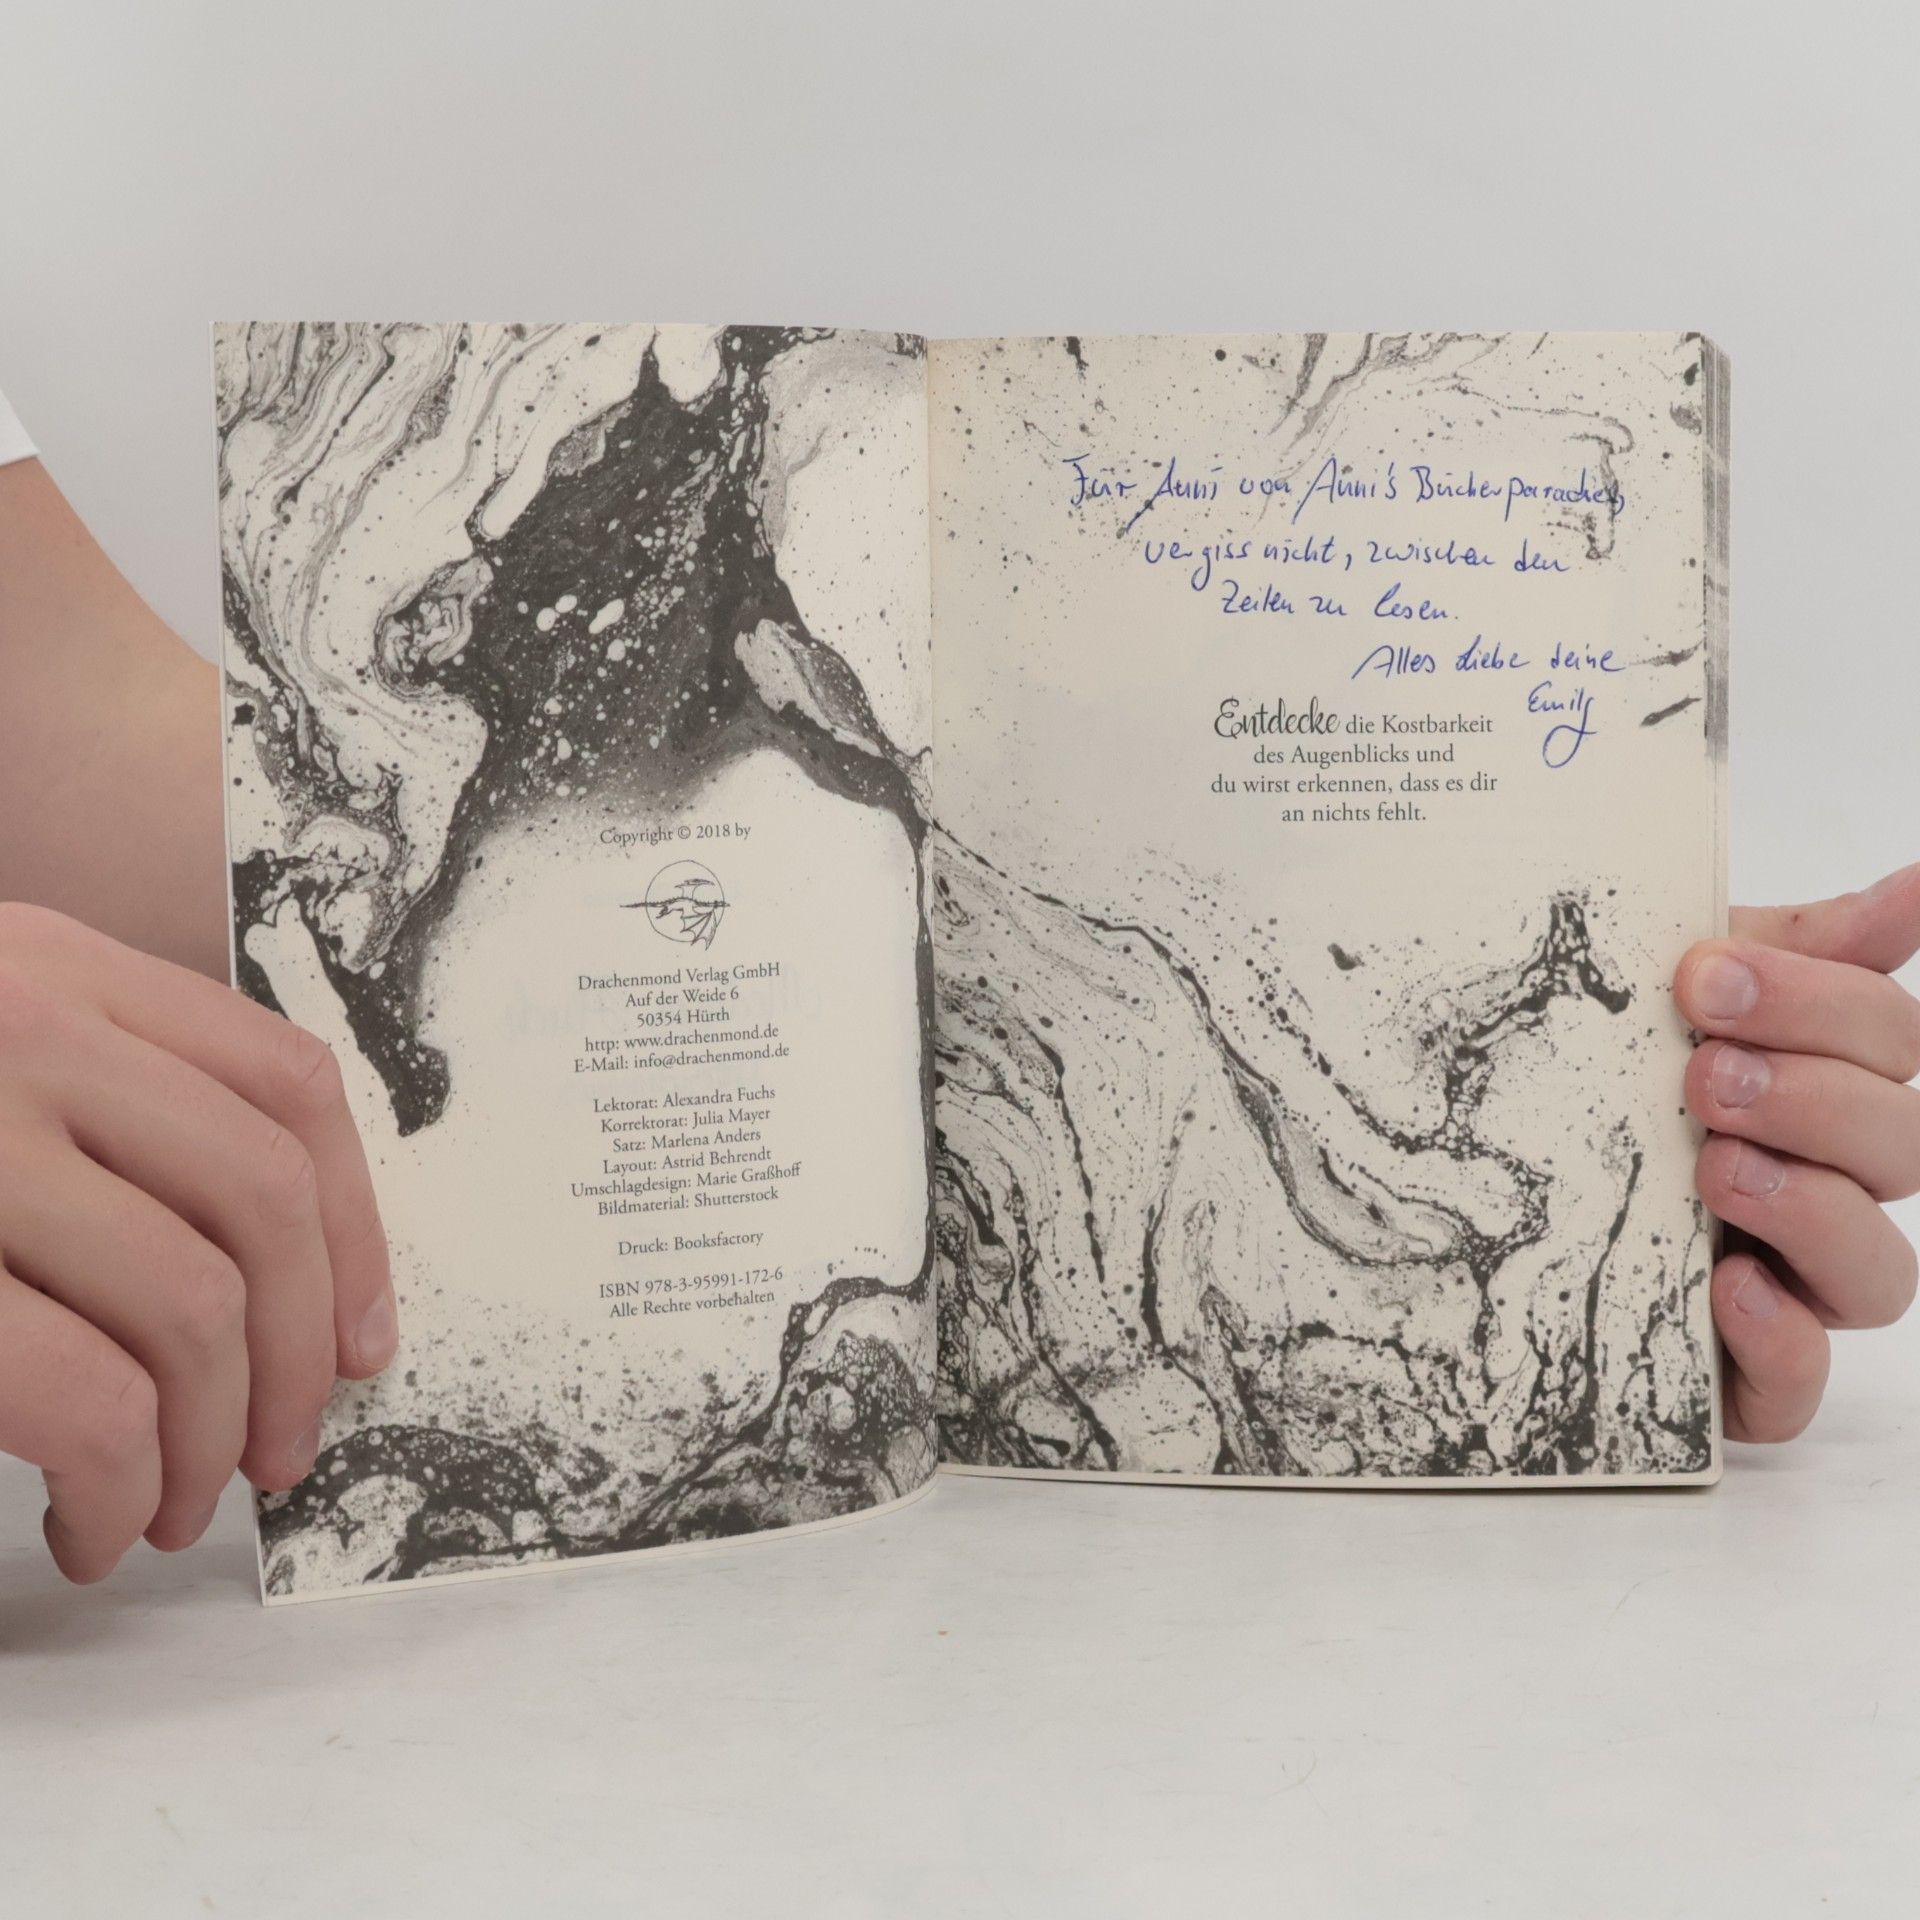 Copyright © 2018 by
Drachenmond Verlag GmbH
Auf der Weide 6
50354 Hürth
http: www.drachenmond.de
E-Mail: info@drachenmond.de
Lektorat: Alexandra Fuchs
Korrektorat: Julia Mayer
Satz: Marlena Anders
Layout: Astrid Behrendt
Umschlagdesign: Marie Graßhoff
Bildmaterial: Shutterstock
Druck: Booksfactory
ISBN 978-3-95991-172-6
Alle Rechte vorbehalten
Für Anni von Anni's Bücherparadies,
vergiss nicht, zwischen den
Zeilen zu lesen.
Alles Liebe deine
Emily
Entdecke die Kostbarkeit
des Augenblicks und
du wirst erkennen, dass es dir
an nichts fehlt.